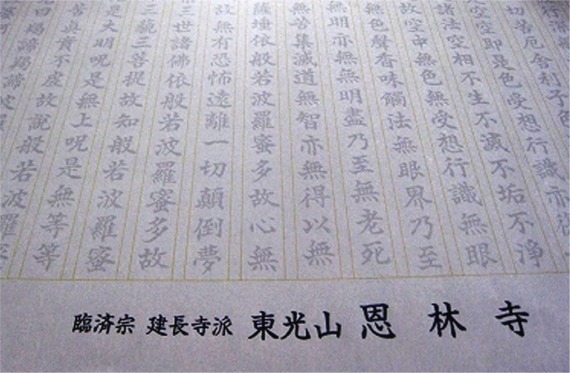 切苦厄舍利子色
空空即是色受想行識亦復
諸法空相不生不滅不垢不淨
故空中無色無受想行識無眼
無色聲香味觸法無眼界乃至
無明亦無無明盡乃至無老死
無苦集滅道無智亦無得以無
薩埵依般若波羅蜜多故心無
故無有恐怖遠離一切顛倒夢
世諸佛依般若波羅蜜多故
三藐三菩提故知般若波羅蜜
是大明呪是無上呪是無等等
苦真實不虛故説般若波羅
曰揭諦揭諦
臨済宗 建長寺派 東光山 恩林寺